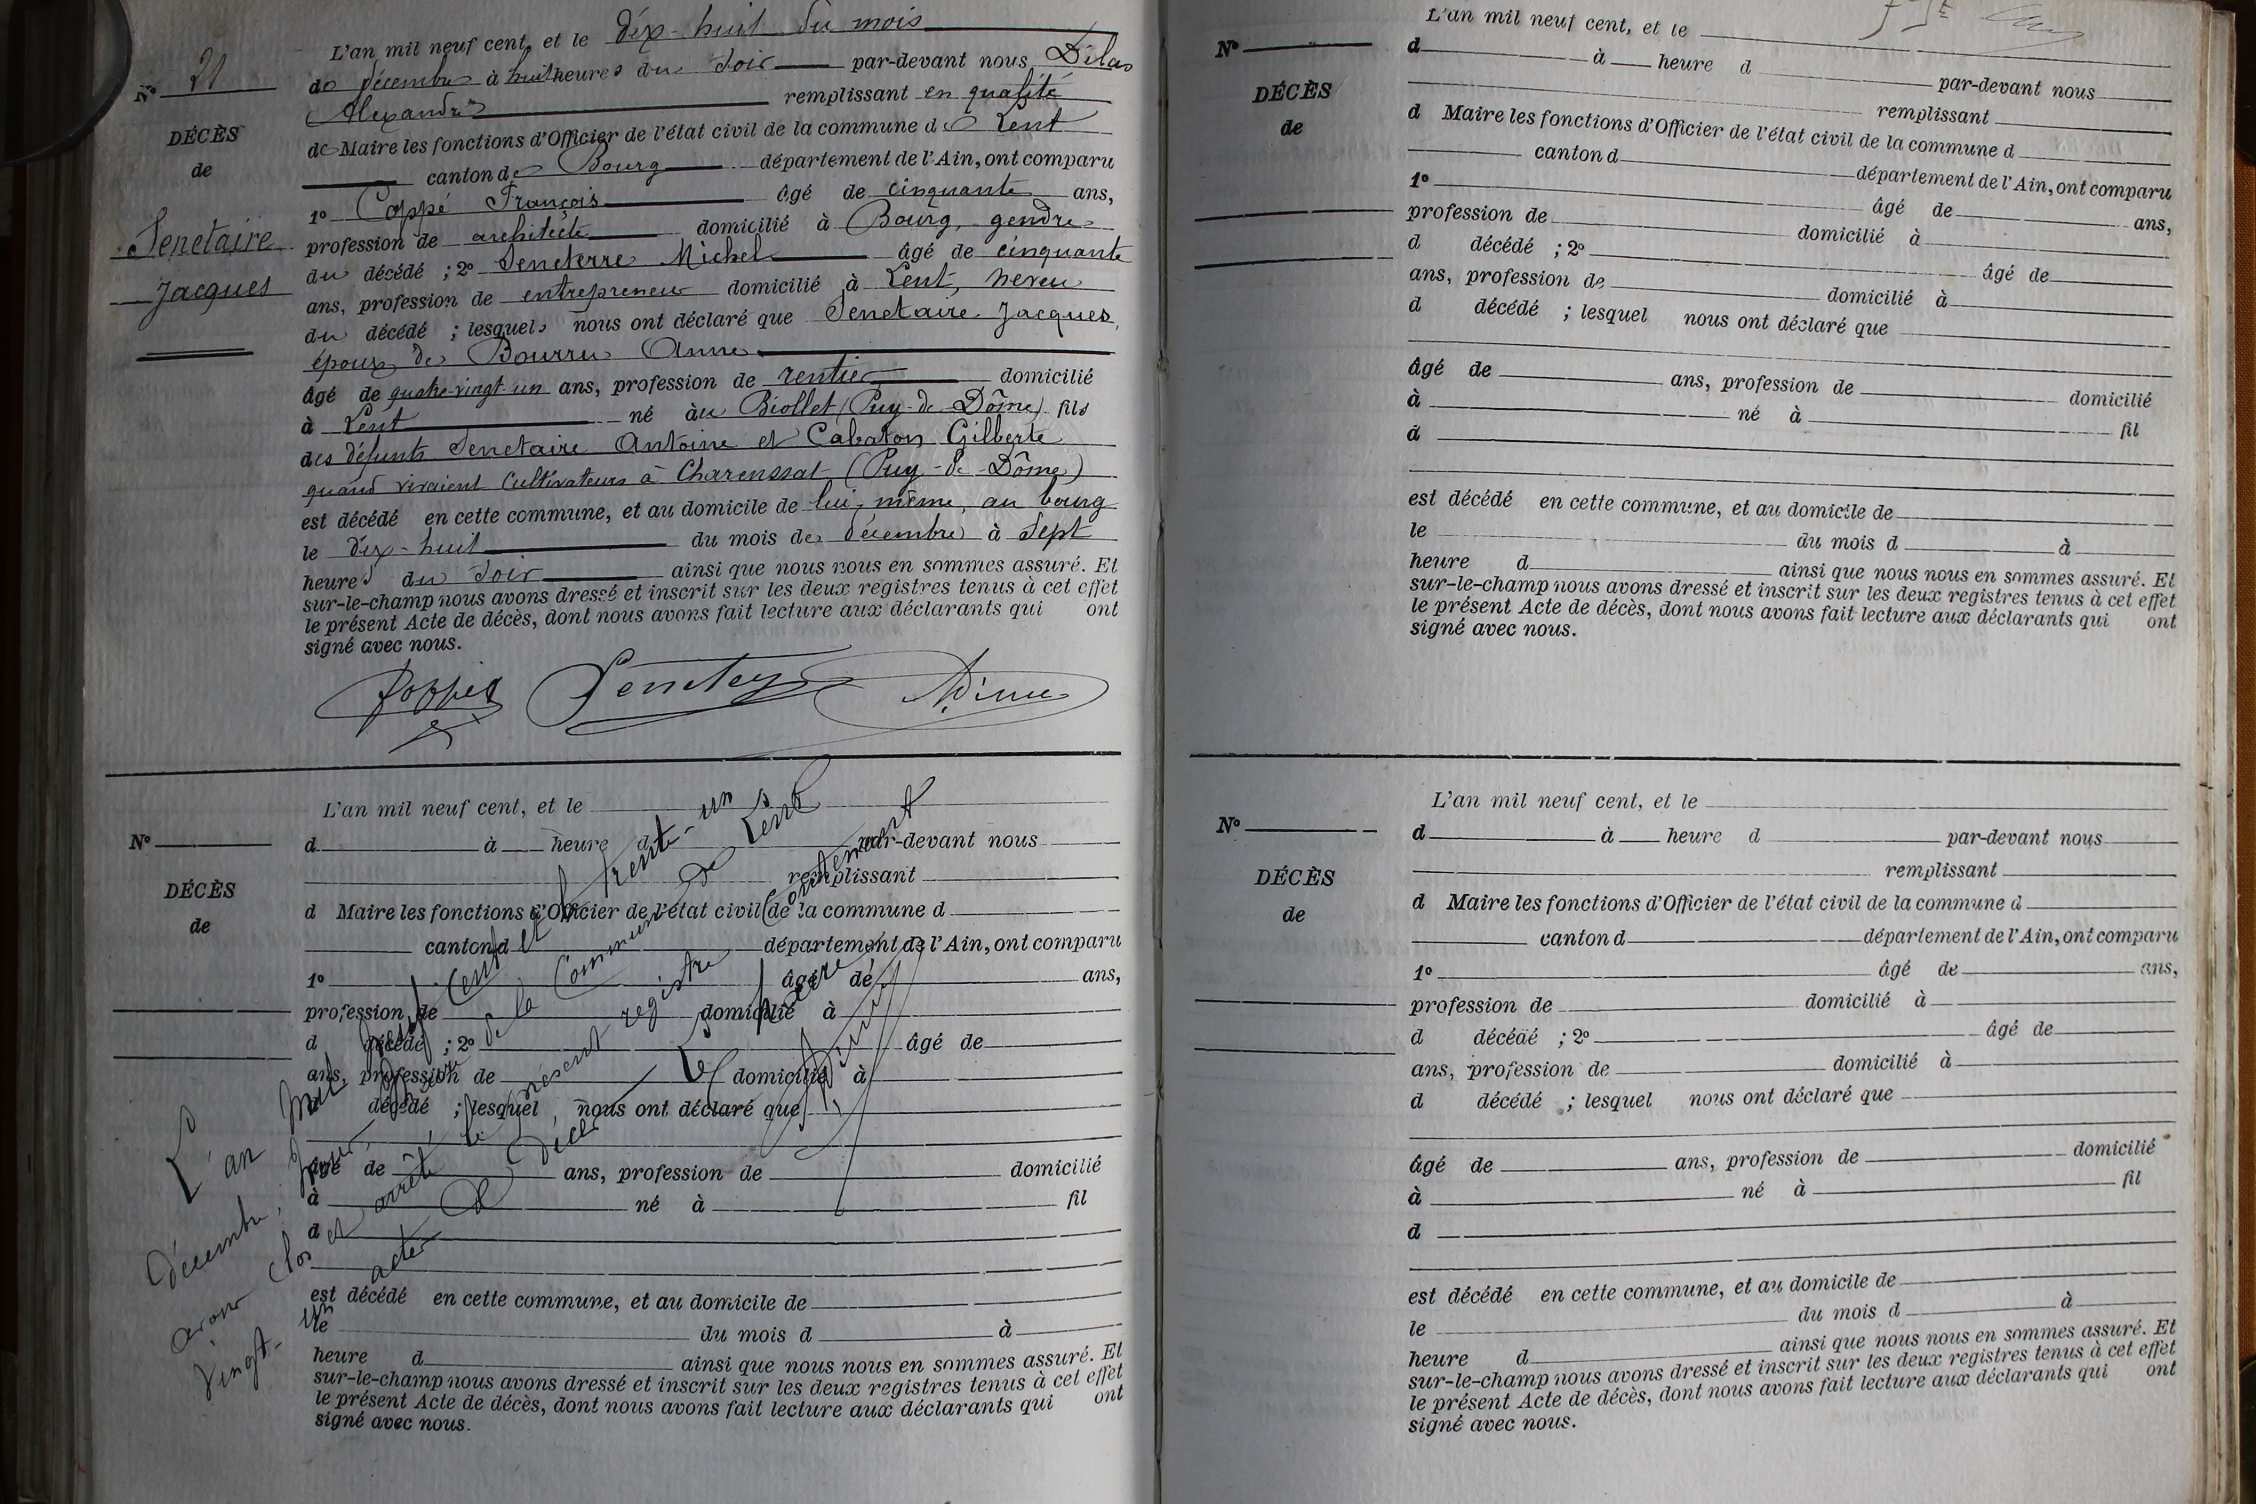 L'an mil neuf cent, et le dix-huit du mois
No 21
de décembre à huit heures du soir par-devant nous Dilas
Alexandre remplissant en qualité
DÉCÈS
de Maire les fonctions d'Officier de l'état civil de la commune de Lent
de
canton de Bourg département de l'Ain, ont comparu
1o Coppé François âgé de cinquante ans,
Senetaire
profession de architecte domicilié à Bourg, gendre
du décédé ; 2o Seneterre Michel âgé de cinquante
Jacques
ans, profession de entrepreneur domicilié à Lent, neveu
du décédé ; lesquels nous ont déclaré que Senetaire Jacques,
époux de Bourru Anne
âgé de quatre-vingt-un ans, profession de rentier domicilié
à Lent né à Biollet (Puy-de-Dôme) fils
des défunts Senetaire Antoine et Cabaton Gilberte
quand vivaient cultivateurs à Charenssat (Puy-de-Dôme)
est décédé en cette commune, et au domicile de lui-même, au bourg
le dix-huit du mois de décembre à sept
heures du soir ainsi que nous nous en sommes assuré. Et
sur-le-champ nous avons dressé et inscrit sur les deux registres tenus à cet effet
le présent Acte de décès, dont nous avons fait lecture aux déclarants qui ont
signé avec nous.
L'an mil neuf cent, et le
No
d à heure d par-devant nous
remplissant
DÉCÈS
d Maire les fonctions d'Officier de l'état civil de la commune d
de
canton d département de l'Ain, ont comparu
1o âgé de ans,
profession de domicilié à
d décédé ; 2o âgé de
ans, profession de domicilié à
d décédé ; lesquel nous ont déclaré que
âgé de ans, profession de domicilié
à né à fil
d
est décédé en cette commune, et au domicile de
le du mois d à
heure d ainsi que nous nous en sommes assuré. Et
sur-le-champ nous avons dressé et inscrit sur les deux registres tenus à cet effet
le présent Acte de décès, dont nous avons fait lecture aux déclarants qui ont
signé avec nous.
L'an mil neuf cent et le trente-un
décembre, nous, Maire de la Commune de Lent
avons clos et arrêté le présent registre contenant
vingt-un actes de Décès
Le Maire
L'an mil neuf cent, et le
No
d à heure d par-devant nous
remplissant
DÉCÈS
d Maire les fonctions d'Officier de l'état civil de la commune d
de
canton d département de l'Ain, ont comparu
1o âgé de ans,
profession de domicilié à
d décédé ; 2o âgé de
ans, profession de domicilié à
d décédé ; lesquel nous ont déclaré que
âgé de ans, profession de domicilié
à né à fil
d
est décédé en cette commune, et au domicile de
le du mois d à
heure d ainsi que nous nous en sommes assuré. Et
sur-le-champ nous avons dressé et inscrit sur les deux registres tenus à cet effet
le présent Acte de décès, dont nous avons fait lecture aux déclarants qui ont
signé avec nous.
L'an mil neuf cent, et le
No
d à heure d par-devant nous
remplissant
DÉCÈS
d Maire les fonctions d'Officier de l'état civil de la commune d
de
canton d département de l'Ain, ont comparu
1o âgé de ans,
profession de domicilié à
d décédé ; 2o âgé de
ans, profession de domicilié à
d décédé ; lesquel nous ont déclaré que
âgé de ans, profession de domicilié
à né à fil
d
est décédé en cette commune, et au domicile de
le du mois d à
heure d ainsi que nous nous en sommes assuré. Et
sur-le-champ nous avons dressé et inscrit sur les deux registres tenus à cet effet
le présent Acte de décès, dont nous avons fait lecture aux déclarants qui ont
signé avec nous.